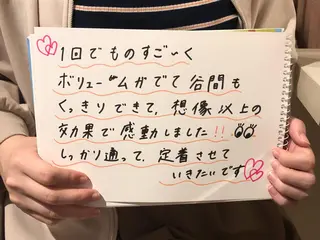 1回でものすご〜く
ボリュームがでて谷間も
くっきりできて、想像以上の
効果で感動しました!!
しっかり通って、定着させて
いきたいです